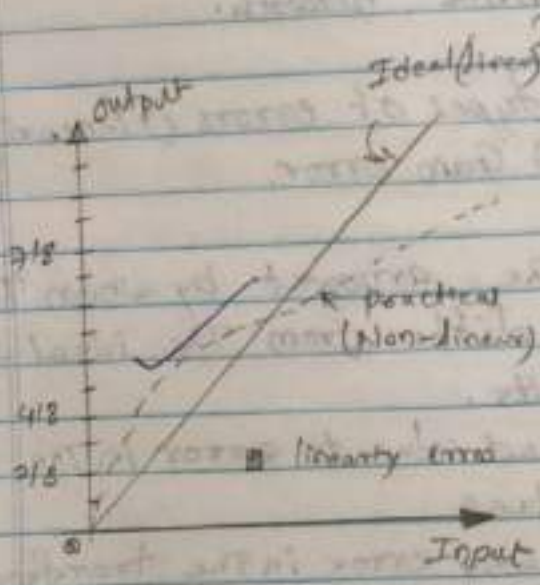 output
Ideal (linear)
7/8
practical
(Non-linear)
4/8
linearty error
2/8
0
Input